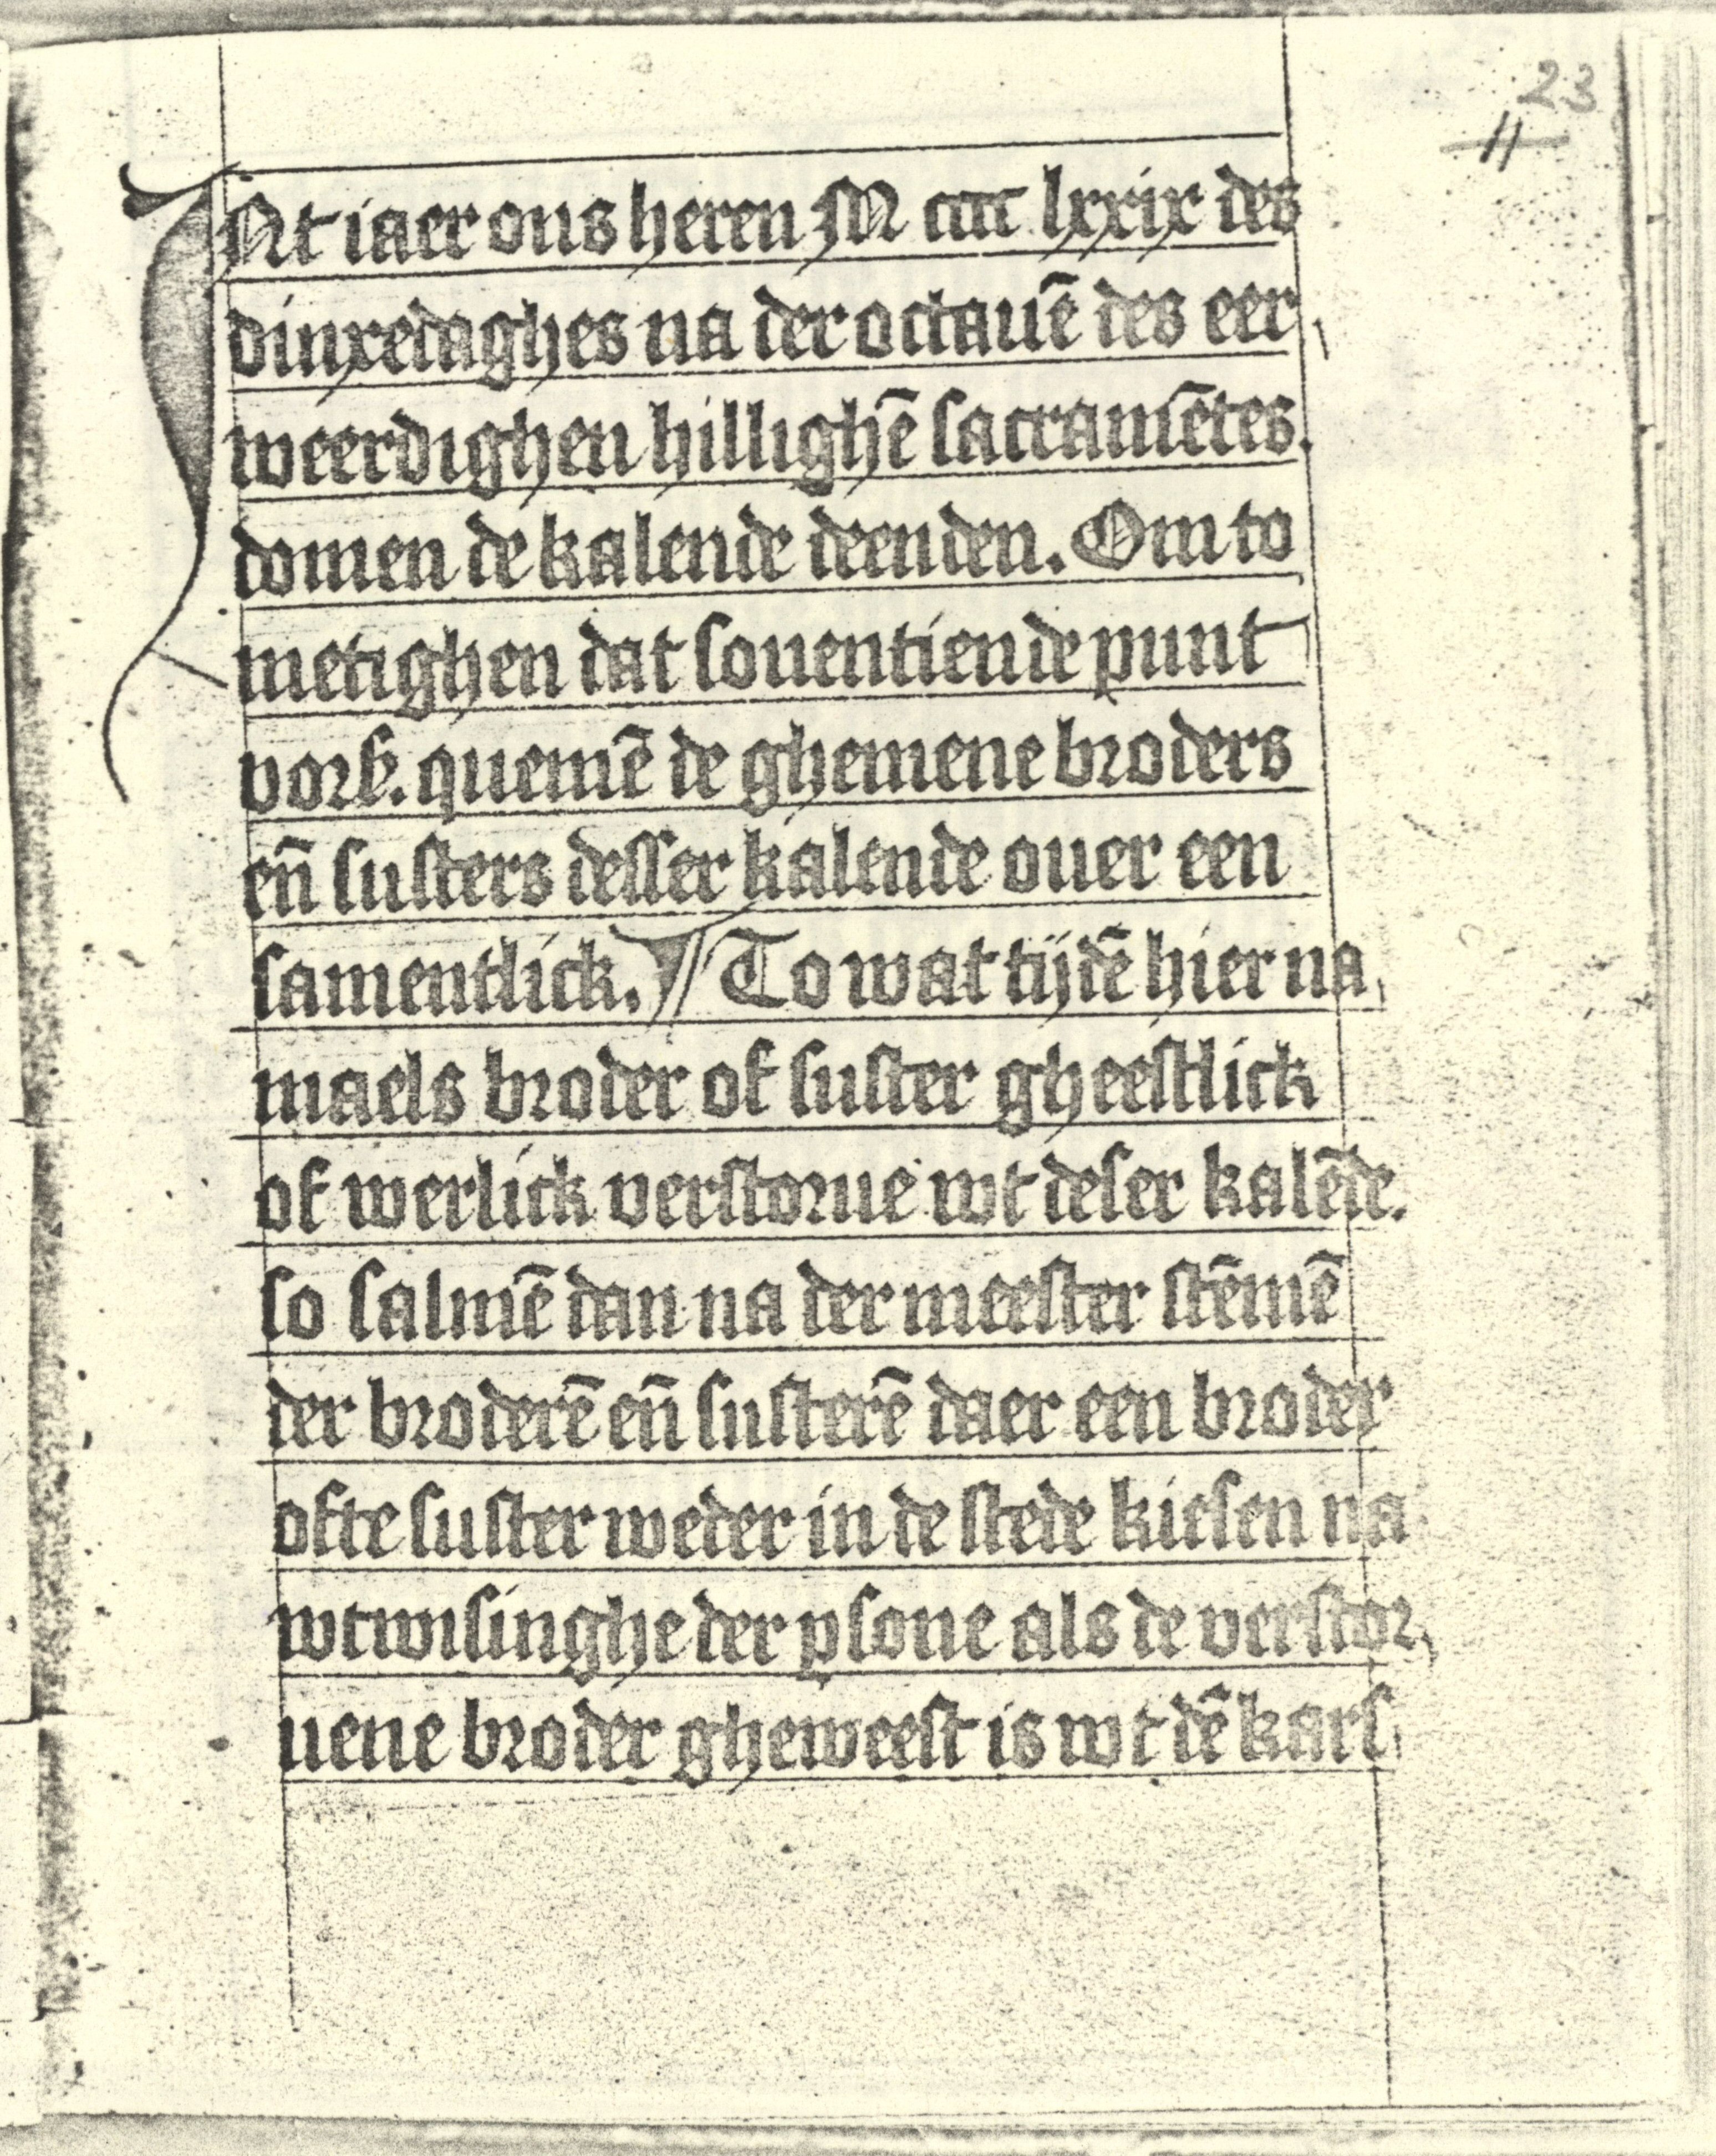 23
11
INt iaer ons heren M cccc lxxix des
dinxedaghes na der octauē des eer,
weerdighen hillighē sacramētes.
domen de kalende deenden. Om to
metighen dat souentiende punt
vors. quemē de ghemene broders
en̄ susters desser kalende ouer een
samentlick. ¶ To wat tijdē hier na,
maels broder of suster gheestlick
of werlick verstorue wt deser kalēde.
so salmē dan na der meester stēmē
der broderē en̄ susterē daer een broder
ofte suster weder in de stede kiesen na
wtwisinghe der ꝑsone als de verstor,
uene broder gheweest is wt dē kars,